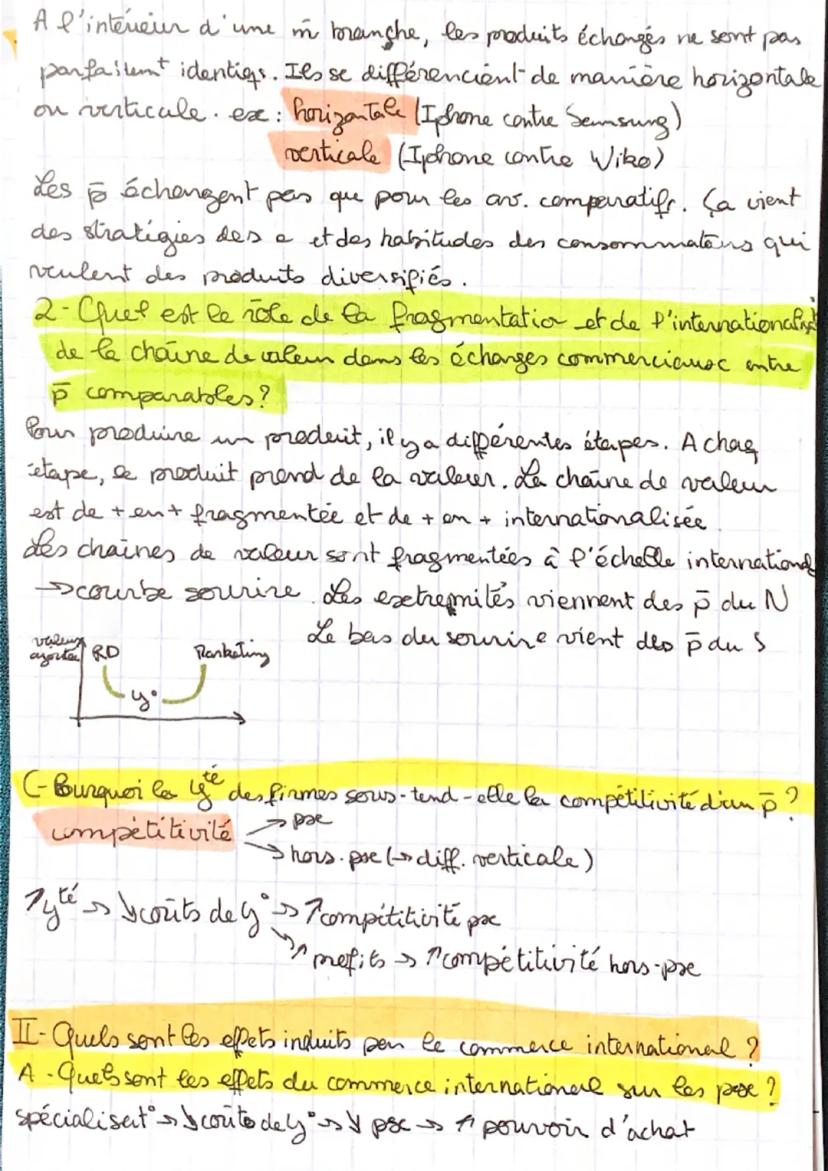 A l'intérieur d'une m̂ branche, les produits échangés ne sont pas
parfaitemt identiqs. Ils se différencient de manière horizontale
ou verticale. ex : horizontale (Iphone contre Semsung)
verticale (Iphone contre Wiko)
Les p̄ échangent pas que pour les av. comparatifs. Ça vient
des stratégies des e et des habitudes des consommateurs qui
veulent des produits diversifiés.
2- Quel est le rôle de la fragmentatio et de l'internationalisat°
de la chaîne de valeur dans les échanges commerciaux entre
p̄ comparables ?
Pour produire un produit, il y a différentes étapes. A chaq
étape, le produit prend de la valeur. La chaîne de valeur
est de + en + fragmentée et de + en + internationalisée
Les chaînes de valeur sont fragmentées à l'échelle international
→ courbe sourire. Les extrepmités viennent des p̄ du N
Le bas du sourire vient des p̄ du S
valeur ajoutée
RD Marketing
y°
C- Pourquoi la yté des firmes sous-tend-elle la compétitivité d'un p̄ ?
compétitivité → px
→ hors-px (→ diff. verticale)
↗ yté → ↘ coûts de y° → ↗ compétitivité px
→ ↗ profits → ↗ compétitivité hors-px
II- Quels sont les effets induits par le commerce international ?
A - Quels sont les effets du commerce international sur les px ?
spécialisat° → ↘ coûts de y° → ↘ px → ↗ pouvoir d'achat